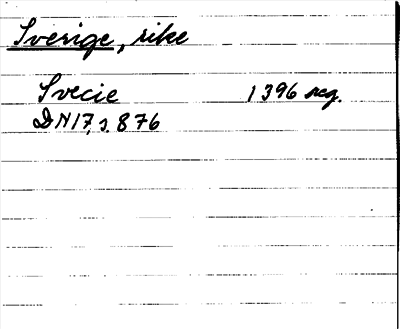 Sverige, rike
Svecie 1396 reg.
DN 17, s. 876